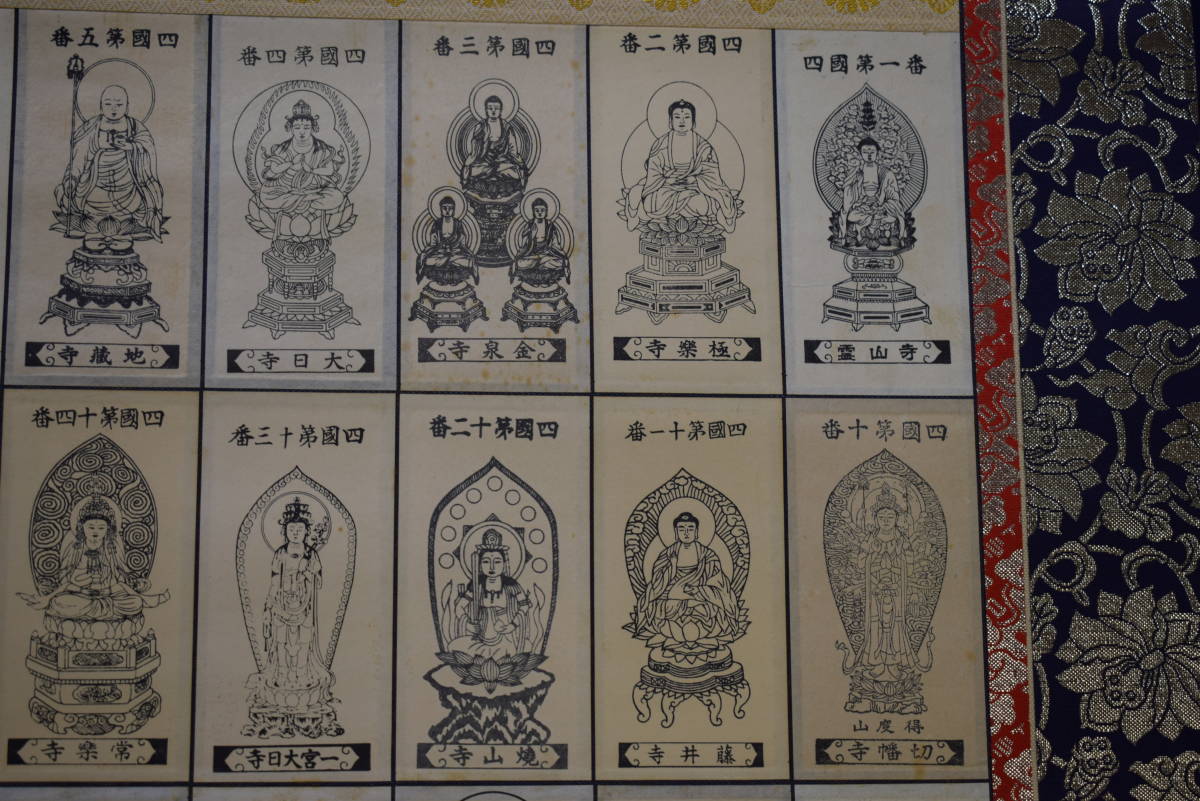 四國第一番
靈山寺
四國第二番
極樂寺
四國第三番
金泉寺
四國第四番
大日寺
四國第五番
地藏寺
四國第十番
得度山
切幡寺
四國第十一番
藤井寺
四國第十二番
燒山寺
四國第十三番
一宮大日寺
四國第十四番
常樂寺